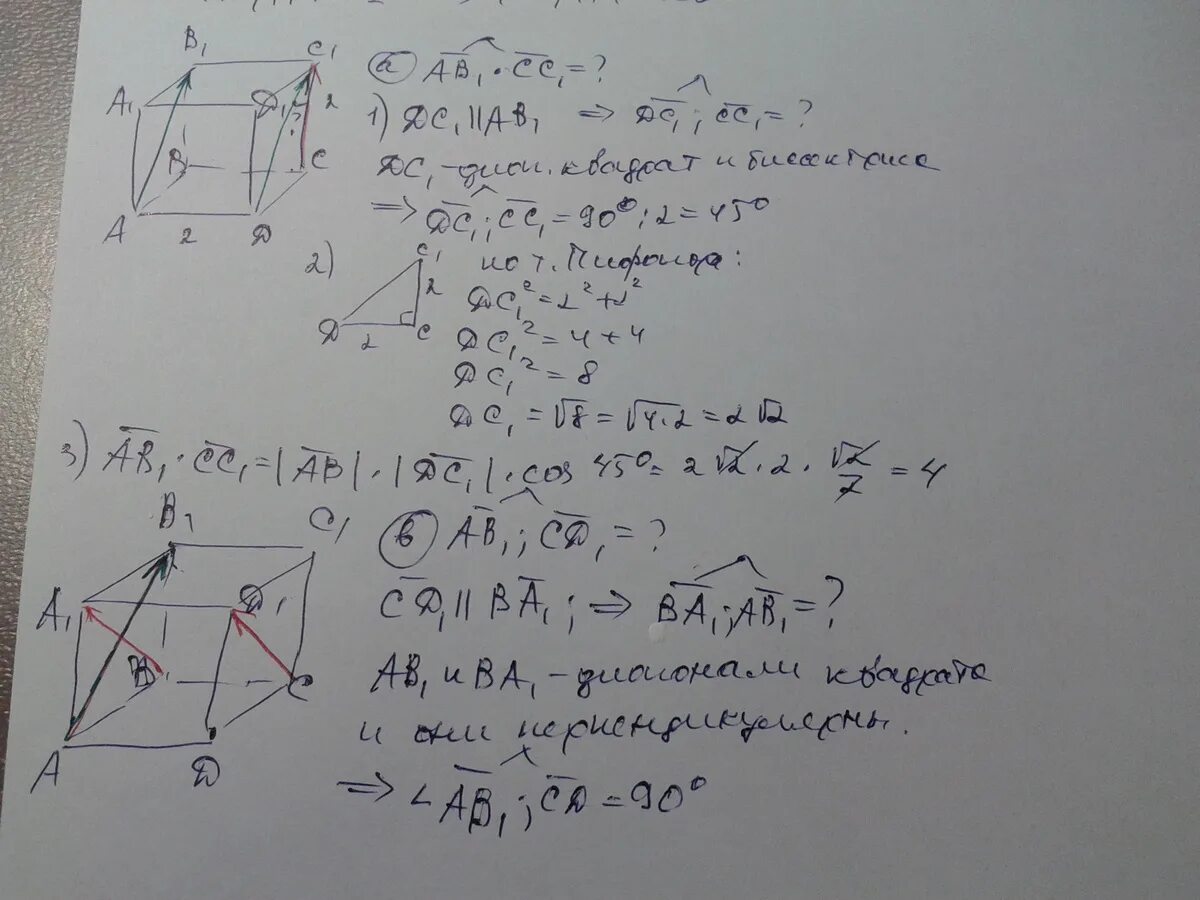 B₁ C₁
A₁ D₁ 2
?
B C
A 2 D
а) AB₁ · CC₁ = ?
1) DC₁ || AB₁ ⇒ DC₁ ; CC₁ = ?
DC₁ - диаг. квадрат и биссектриса
⇒ DC₁ ; CC₁ = 90° : 2 = 45°
2) C₁ по т. Пифагора:
2
D 2 C
DC₁² = 2² + 2²
DC₁² = 4 + 4
DC₁² = 8
DC₁ = √8 = √4·2 = 2√2
3) AB₁ · CC₁ = |AB| · |DC₁| · cos 45° = 2√2 · 2 · √2/2 = 4
B₁ C₁
A₁ D₁
B C
A D
в) AB₁ ; CD₁ = ?
CD₁ || BA₁ ; ⇒ BA₁ ; AB₁ = ?
AB₁ и BA₁ - диагонали квадрата
и они перпендикулярны.
⇒ ∠ AB₁ ; CD = 90°